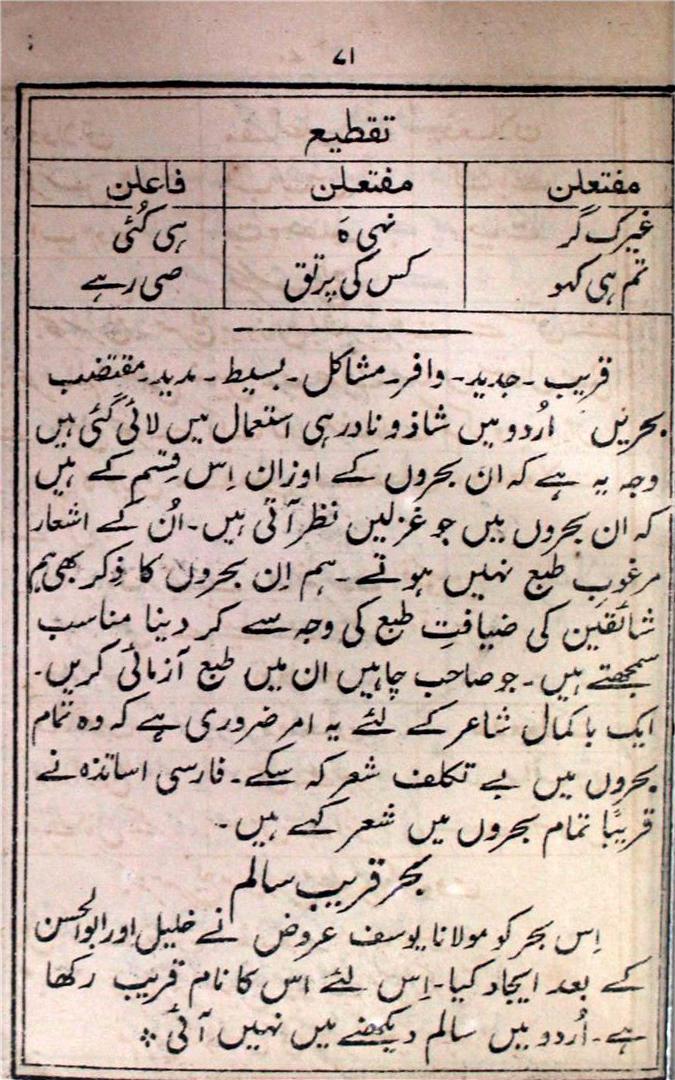 ۷۱
تقطیع
مفتعلن مفتعلن فاعلن
غیرک گر نہی ہَ ہی گئی
تم ہی کہو کس کی پرتق صی رہے
قریب ۔ جدید ۔ وافر ۔ مشاکل ۔ بسیط ۔ مدید ۔ مقتضب
بحریں اُردو میں شاذ و نادر ہی استعمال میں لائی گئی ہیں
وجہ یہ ہے کہ ان بحروں کے اوزان اِس قِسم کے ہیں
کہ ان بحروں میں جو غزلیں نظر آتی ہیں۔ اُن کے اشعار
مرغوبِ طبع نہیں ہوتے ۔ ہم اِن بحروں کا ذِکر بھی ہم
شائقین کی ضیافتِ طبع کی وجہ سے کر دینا مناسب
سمجھتے ہیں ۔ جو صاحب چاہیں ان میں طبع آزمائی کریں۔
ایک باکمال شاعر کے لئے یہ امر ضروری ہے کہ وہ تمام
بحروں میں بے تکلف شعر کہ سکے ۔ فارسی اساتذہ نے
قریباً تمام بحروں میں شعر کہے ہیں ۔
بحر قریب سالم
اِس بحر کو مولانا یوسف عروض نے خلیل اور ابوالحسن
کے بعد ایجاد کیا۔ اِس لئے اس کا نام قریب رکھا
ہے۔ اُردو میں سالم دیکھنے میں نہیں آئی ؞